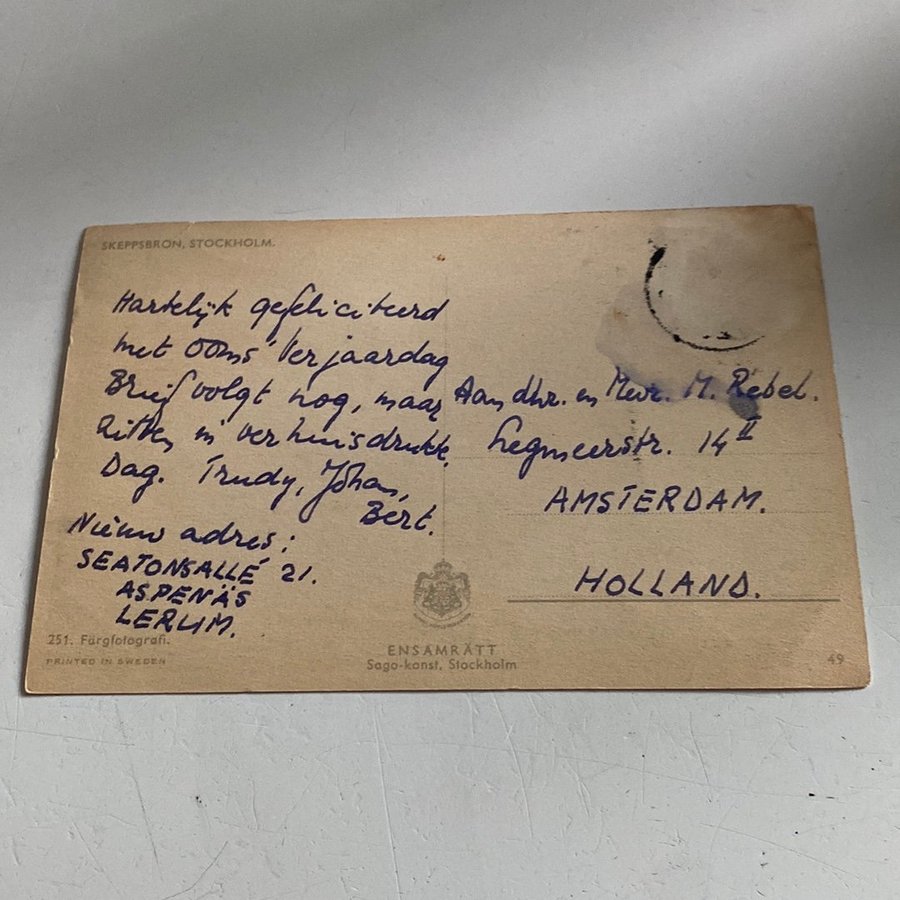 SKEPPSBRON, STOCKHOLM.
Hartelijk gefeliciteerd
met Ooms' Verjaardag
Brief volgt nog, maar
zitten in verhuisdrukte.
Dag. Trudy, Johan,
Bert.
Nieuw adres:
SEATONSALLÉ 21.
ASPENÄS
LERUM.
Aan dhr. en Mevr. M. Rebel.
Legmeerstr. 14 II
AMSTERDAM.
HOLLAND.
251. Färgfotografi.
PRINTED IN SWEDEN
ENSAMRÄTT
Sago-konst, Stockholm
49